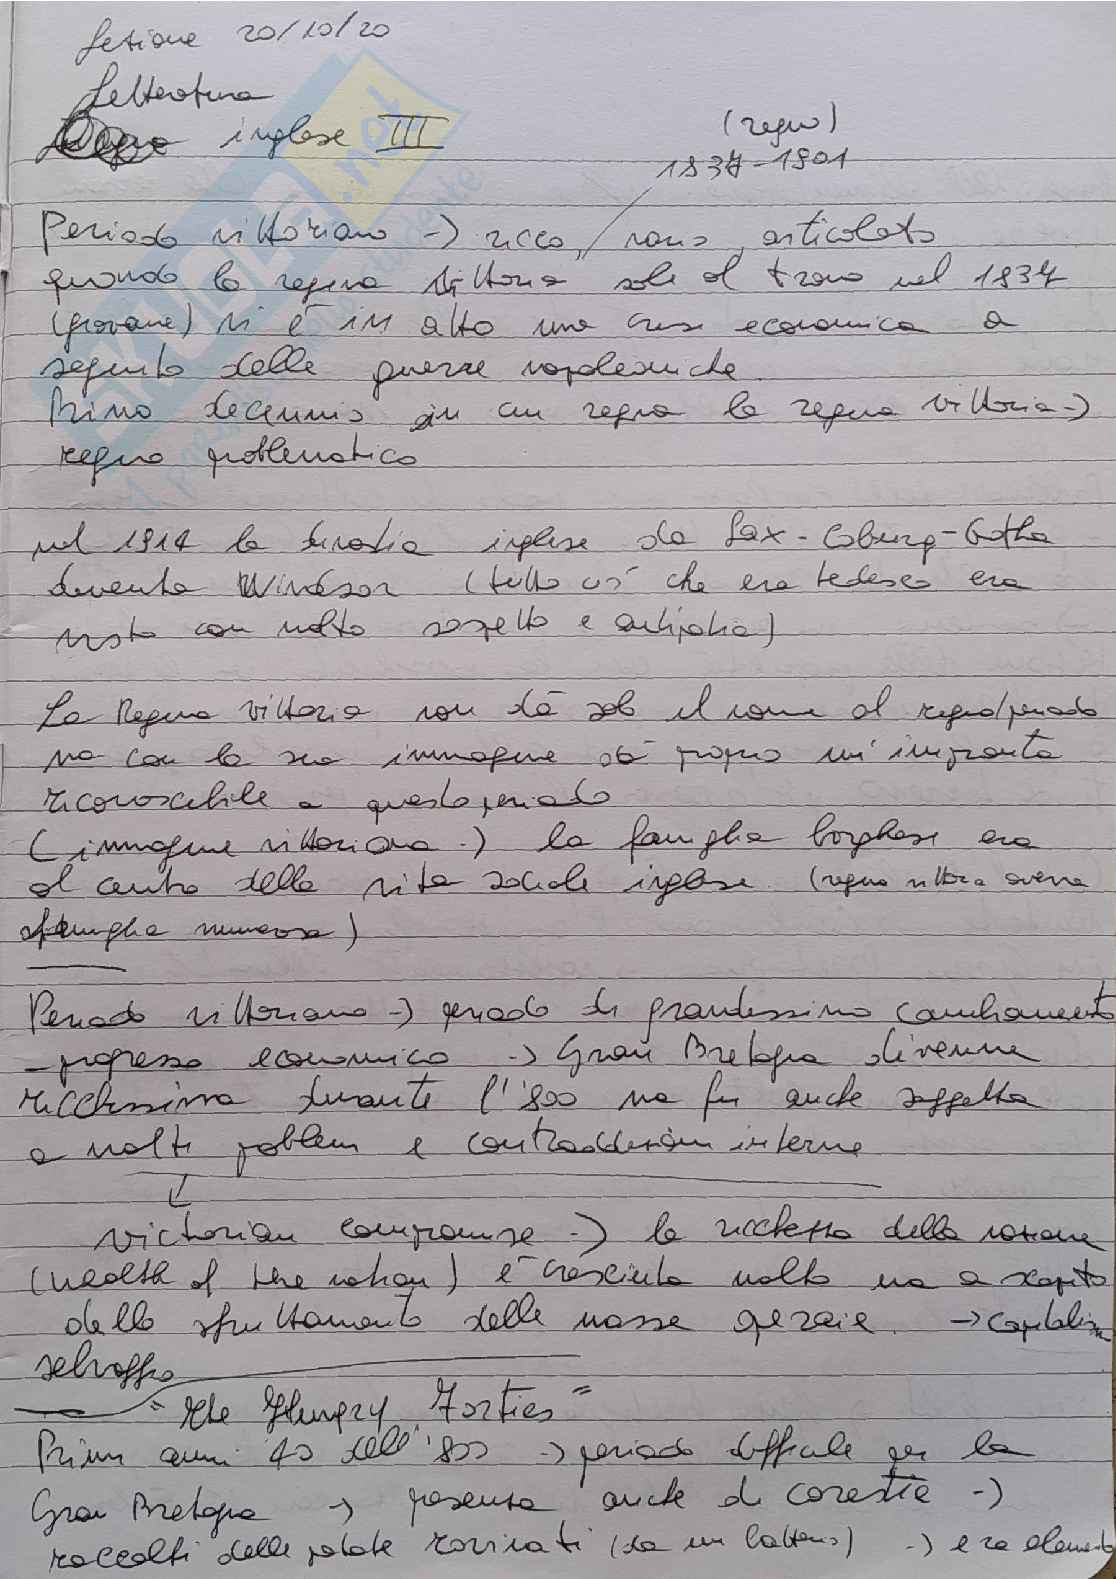 Lezione 20/10/20
Letteratura
inglese III
(regno)
1837-1901
Periodo vittoriano -> ricco, vario, articolato
quando la regina Vittoria sale al trono nel 1837
(giovane) vi è in atto una crisi economica a
seguito delle guerre napoleoniche
Primo decennio in cui regna la regina Vittoria ->
regno problematico
nel 1917 la dinastia inglese da Sax-Coburg-Gotha
diventa Windsor (tutto ciò che era tedesco era
visto con molto sospetto e antipatia)
La Regina Vittoria non dà solo il nome al regno/periodo
ma con la sua immagine dà proprio un'impronta
riconoscibile a questo periodo
(immagine vittoriana -> la famiglia borghese era
al centro della vita sociale inglese (regina vittoria aveva
famiglia numerosa)
Periodo vittoriano -> periodo di grandissimo cambiamento
- progresso economico -> Gran Bretagna divenne
ricchissima durante l'800 ma fu anche soggetta
a molti problemi e contraddizioni interne
victorian compromise -> la ricchezza della nazione
(wealth of the nation) è cresciuta molto ma a scapito
dello sfruttamento delle masse operaie -> capitalism
selvaggio
"The Hungry Forties"
Primi anni 40 dell'800 -> periodo difficile per la
Gran Bretagna -> presenza anche di carestie ->
raccolti delle patate rovinati (da un batterio) -> era elemento
SKUOLA.net